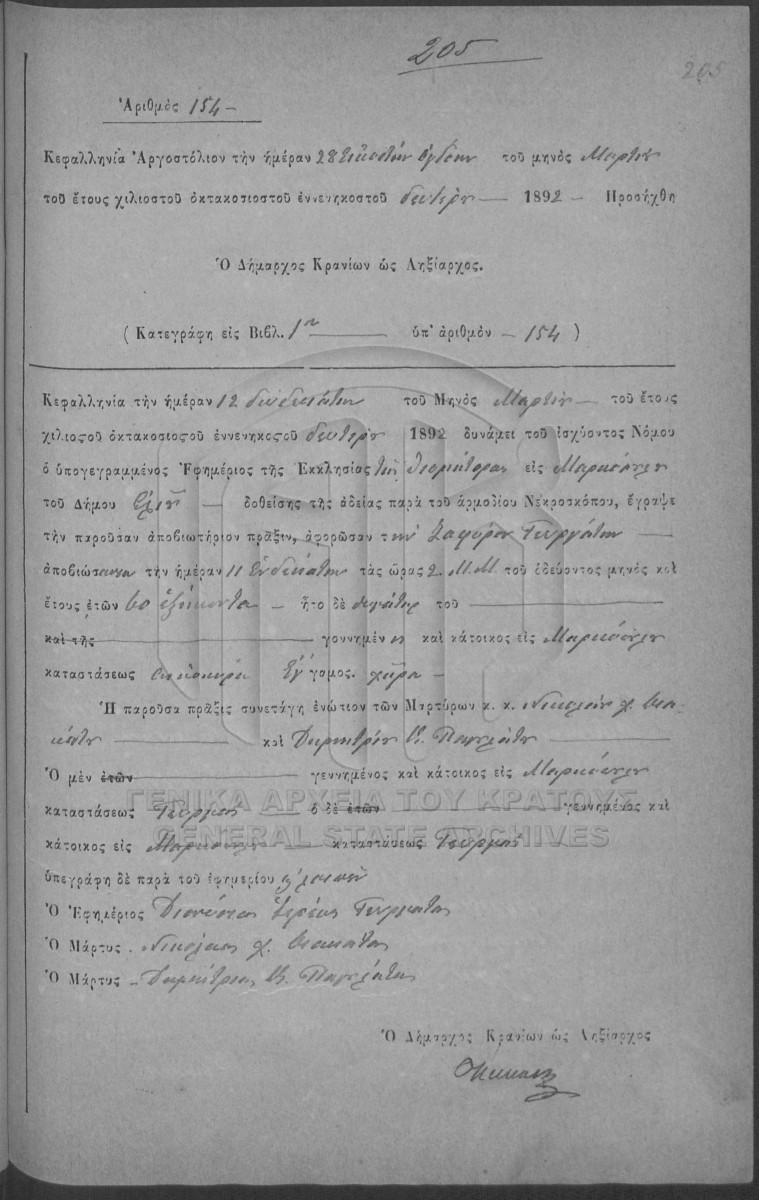 205
205
Ἀριθμὸς 154 —
Κεφαλληνία Ἀργοστόλιον τὴν ἡμέραν 28 εἰκοστὴν ὀγδόην τοῦ μηνὸς Μαρτίου
τοῦ ἔτους χιλιοστοῦ ὀκτακοσιοστοῦ ἐννενηκοστοῦ δευτέρου — 1892 — Προσήχθη
Ὁ Δήμαρχος Κρανίων ὡς Ληξίαρχος.
( Κατεγράφη εἰς Βιβλ. 1ον ὑπ' ἀριθμὸν — 154 )
Κεφαλληνία τὴν ἡμέραν 12 δωδεκάτην τοῦ Μηνὸς Μαρτίου — τοῦ ἔτους
χιλιοςοῦ ὀκτακοσιοςοῦ ἐννενηκοςοῦ δευτέρου 1892 δυνάμει τοῦ ἰσχύοντος Νόμου
ὁ ὑπογεγραμμένος Ἐφημέριος τῆς Ἐκκλησίας τῆς Θεομήτορος εἰς
τοῦ Δήμου — δοθείσης τῆς ἀδείας παρὰ τοῦ ἁρμοδίου Νεκροσκόπου, ἔγραψε
τὴν παροῦσαν ἀποβιωτήριον πρᾶξιν, ἀφορῶσαν τὴν
ἀποβιώσασαν τὴν ἡμέραν 11 ἑνδεκάτην τὰς ὥρας 2. Μ.Μ. τοῦ ὁδεύοντος μηνὸς καὶ
ἔτους ἐτῶν 60 ἑξήκοντα — ἦτο δὲ θυγάτηρ τοῦ
καὶ τῆς γοννημένη καὶ κάτοικος εἰς
καταστάσεως οἰκοκυρὰ Ἔγγαμος. χήρα —
Ἡ παροῦσα πρᾶξις συνετάγη ἐνώτιον τῶν Μαρτύρων κ. κ. Νικολάου
καὶ Δημητρίου
Ὁ μὲν ἐτῶν γεννημένος καὶ κάτοικος εἰς
καταστάσεως Γεωργὸς ὁ δὲ ἐτῶν γεννημένος καὶ
κάτοικος εἰς καταστάσεως Γεωργὸς
ὑπεγράφη δὲ παρὰ τοῦ ἐφημερίου
Ὁ Ἐφημέριος Διονύσιος Ἱερεὺς
Ὁ Μάρτυς . Νικόλαος
Ὁ Μάρτυς — Δημήτριος
Ὁ Δήμαρχος Κρανίων ὡς Ληξίαρχος
ΓΕΝΙΚΑ ΑΡΧΕΙΑ ΤΟΥ ΚΡΑΤΟΥΣ
GENERAL STATE ARCHIVES